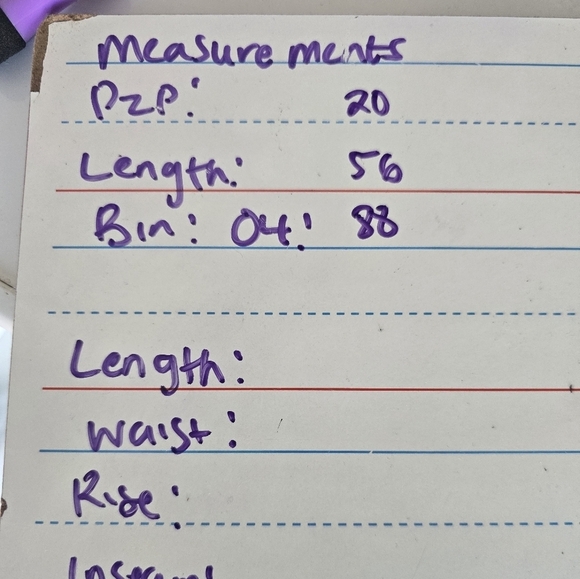 Measurements
P2P: 20
Length: 56
Bin: 04: 88
Length:
Waist:
Rise: